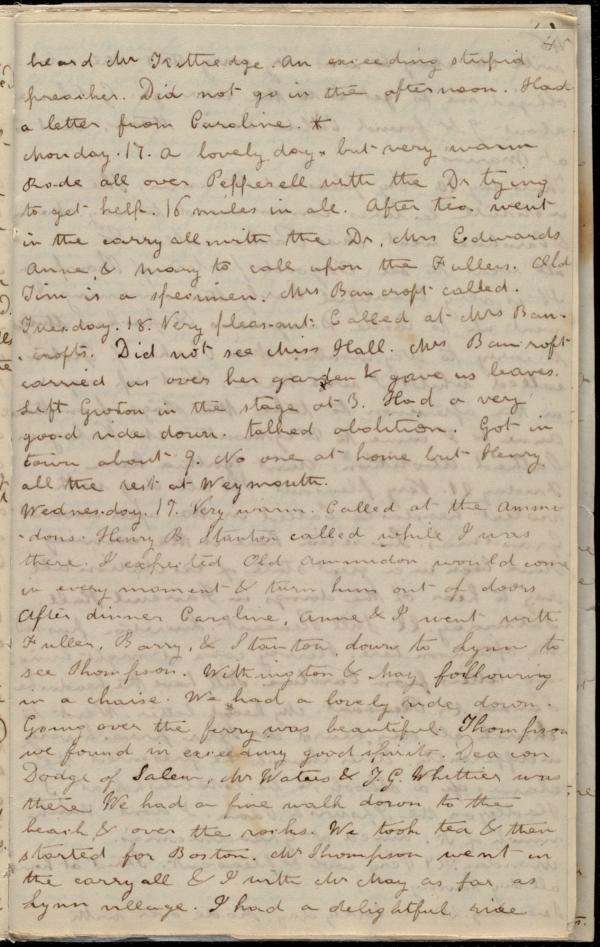 heard Mr Kittredge an exceeding stupid
preacher. Did not go in the afternoon. Had
a letter from Caroline. *
Monday. 17. A lovely day, but very warm
Rode all over Pepperell with the Dr trying
to get help. 16 miles in all. After tea. went
in the carryall with the Dr, Mrs Edwards
Anne, & Mary to call upon the Fullers. Old
Tim is a specimen. Mrs Bancroft called.
Tuesday. 18. Very pleasant. Called at Mrs Ban-
-crofts. Did not see Miss Hall. Mrs Bancroft
carried us over her garden & gave us leaves.
Left Groton in the stage at 3. Had a very
good ride down. talked abolition. Got in
town about 9. No one at home but Henry
all the rest at Weymouth.
Wednesday. 19. Very warm. Called at the Ammi-
-dons. Henry B Stanton called while I was
there. I expected Old Ammidon would come
in every moment & turn him out of doors
After dinner Caroline, Anne & I went with
Fuller, Barry, & Stanton down to Lynn to
see Thompson. Withington & May following
in a chaise. We had a lovely ride down.
Going over the ferry was beautiful. Thompson
we found in exceeding good spirits. Deacon
Dodge of Salem, Mr Waters & J. G. Whittier was
there We had a fine walk down to the
beach & over the rocks. We took tea & then
started for Boston. Mr Thompson went in
the carryall & I with Mr May as far as
Lynn village. I had a delightful ride